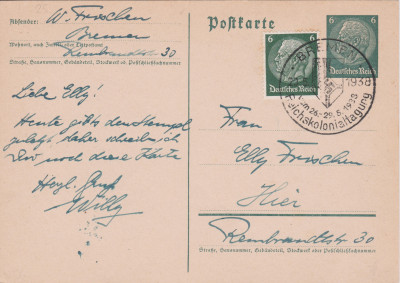 Absender: W. Frischen
Bremen
Wohnort, auch Zustell- oder Leitpostamt
Rembrandtstr 30
Straße, Hausnummer, Gebäudeteil, Stockwerk od. Postschließfachnummer
Liebe Elly!
Heute gibt's den Stempel
zuletzt, daher schreibe ich
Dir noch diese Karte
Herzl. Gruß
Willy
Postkarte
6 6
Deutsches Reich
6 6
Deutsches Reich
BREMEN
1938
Reichskolonialtagung
Frau
Elly Frischen
Hier
Rembrandtstr 30
Straße, Hausnummer, Gebäudeteil, Stockwerk od. Postschließfachnummer